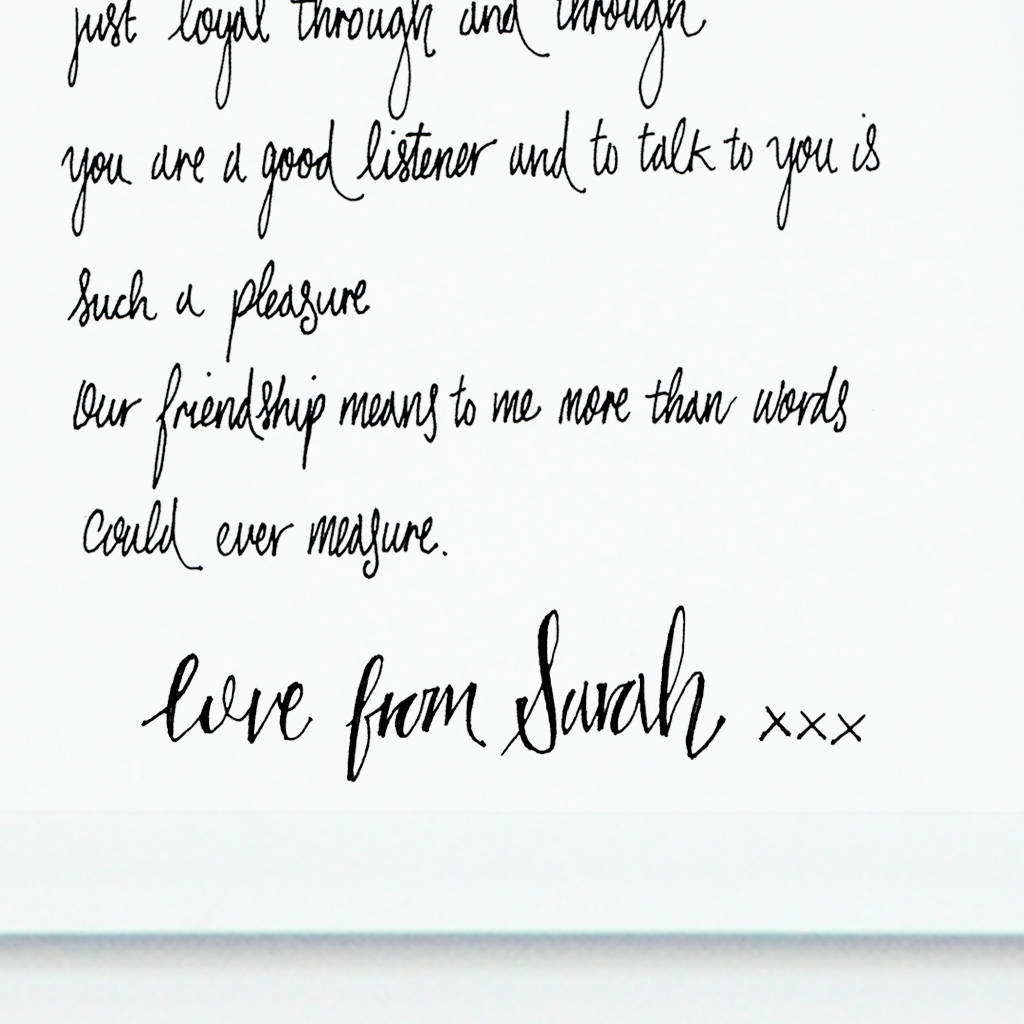 just loyal through and through
you are a good listener and to talk to you is
such a pleasure
Our friendship means to me more than words
could ever measure.
love from Sarah xxx